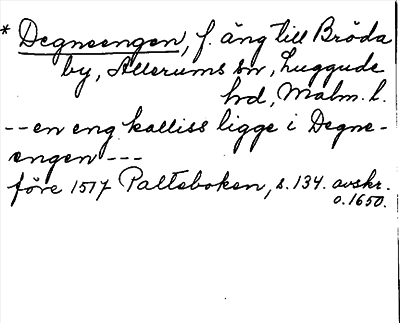 * Degneengen, f. äng till Bröda
by, Allerums sn, Luggude
hd, Malm. l.
-- en eng kalliss ligge i Degne-
engen ---
före 1517 Palteboken, s. 134. avskr.
o. 1650.